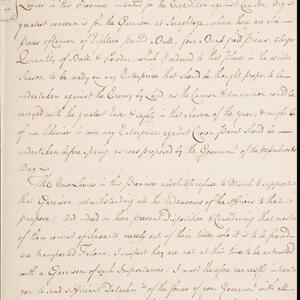 Levies in this Province intended for the Expedition against Canada. My
greatest concern is for the Garrison at Saratoga, where there are six
pieces of Cannon of Eighteen pound Ball, four Brass field Pieces, a large
Quantity of Ball & Powder which I ordered to that Place in the Winter
Season to be ready on any Enterprize that should be thought proper to be
undertaken against the Enemy by Land, as the Cannon & Ammunition could be
carryed with the greatest Ease & Safety in that Season of the year, & might be
of use likewise in case any Enterprize against Crown Point should be
undertaken before Spring, as was proposed by the Government of the Massachusets
Bay.
The New Levies in this Province absolutely refuse to March to support
that Garrison notwithstanding all the Endeavours of the Officers to that
purpose. And indeed in their present Disposition & Considering that most
of them consist of Servants meerly out of their times who it is to be feared
are transported Felons, I suspect they are not at this time to be intrusted
with a Garrison of such Importance. I must therefore earnestly intreat
you to send a sufficient Detachmt of the forces of your Governmt with all